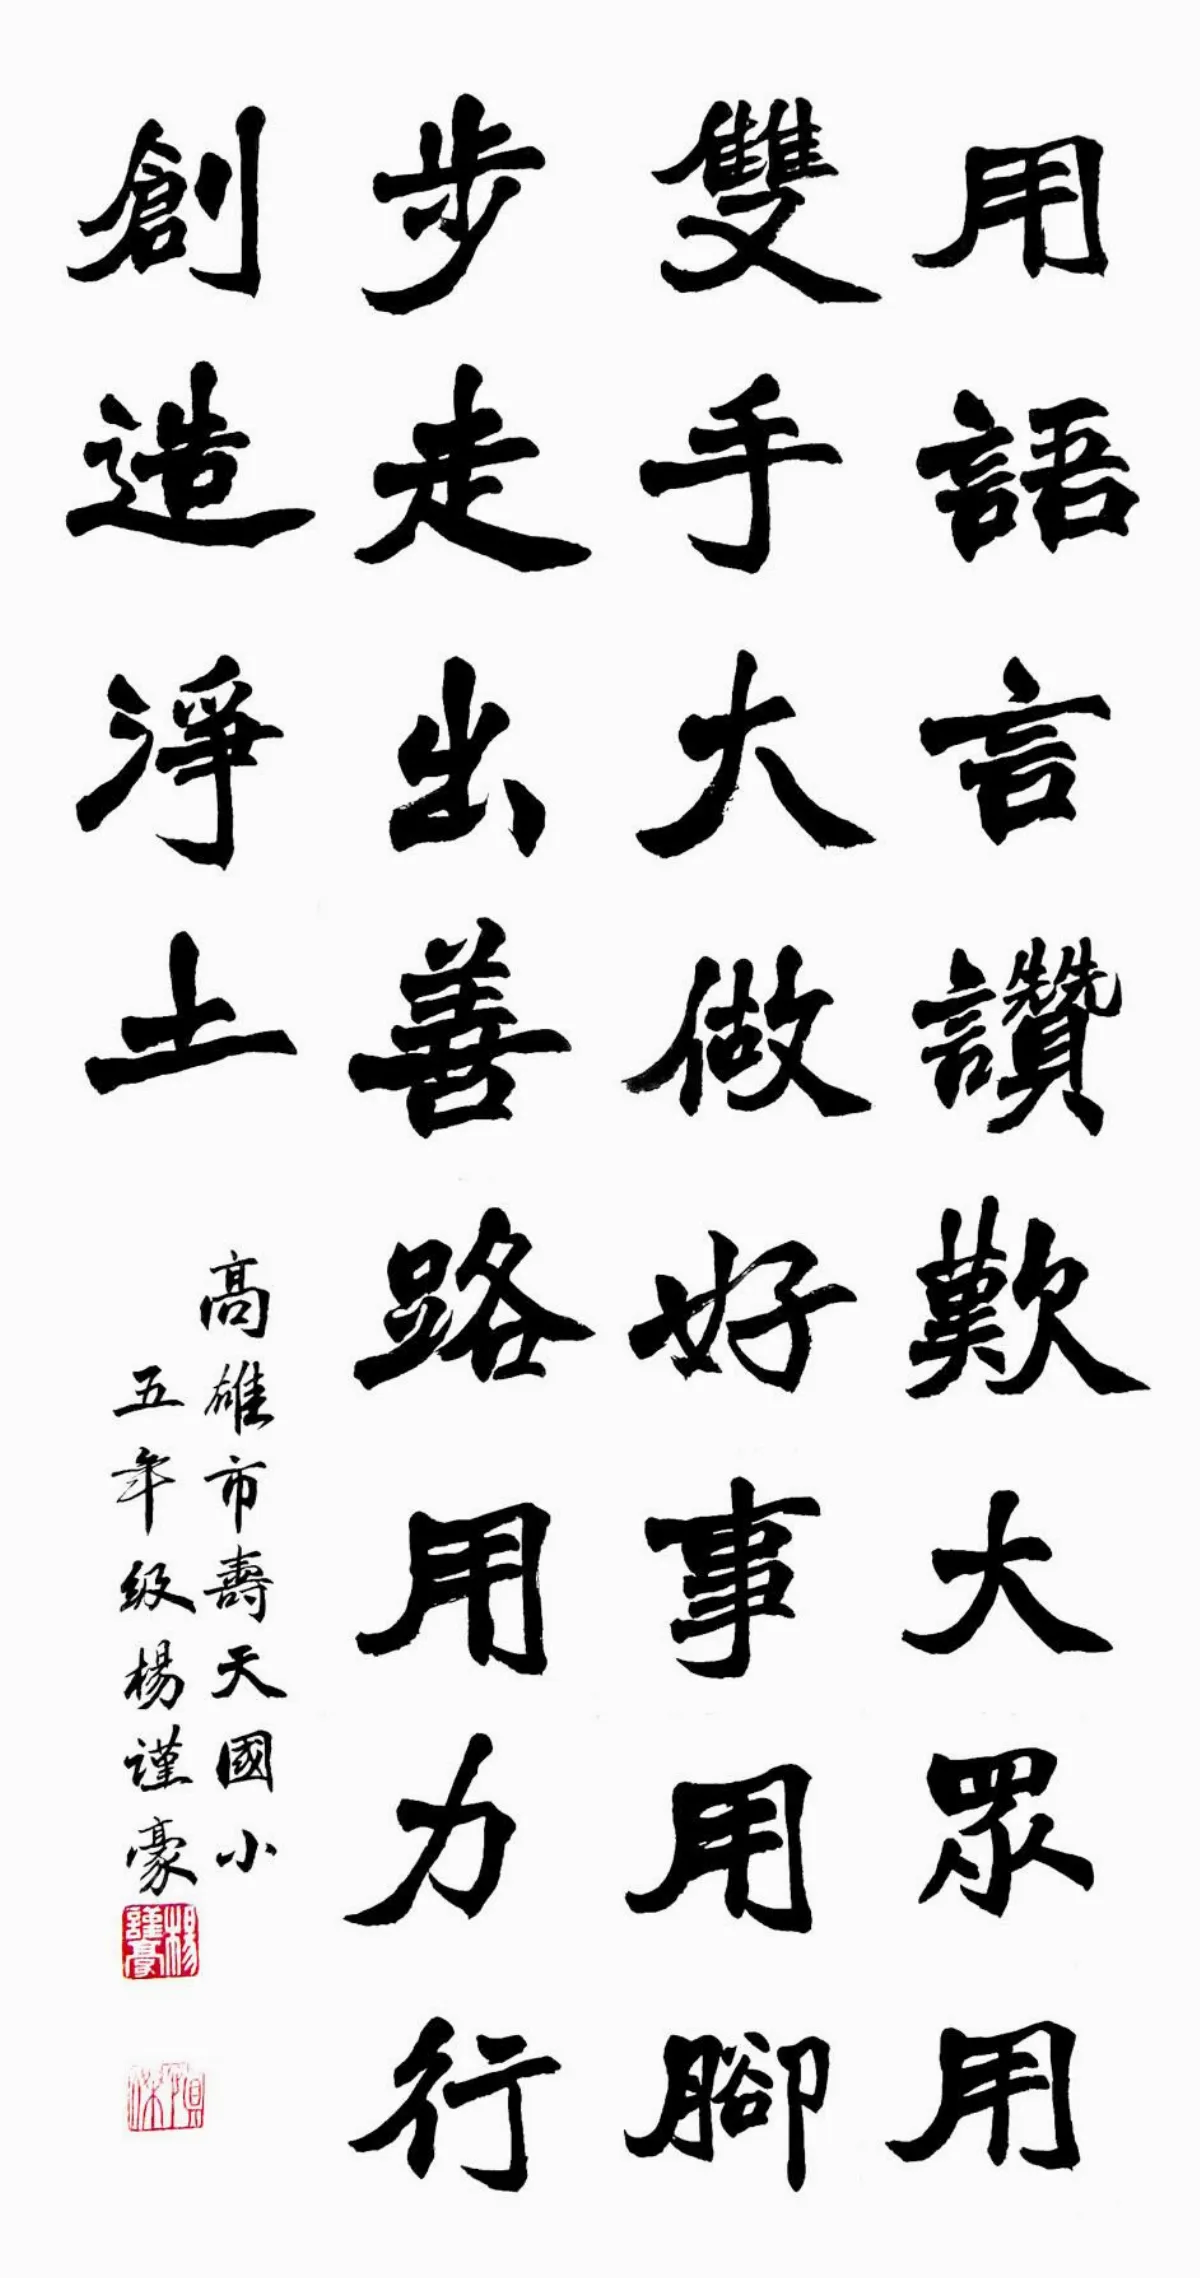 用語言讚歎大眾用
雙手大做好事用腳
步走出善路用力行
創造淨土
高雄市壽天國小
五年級楊謹豪
楊謹豪